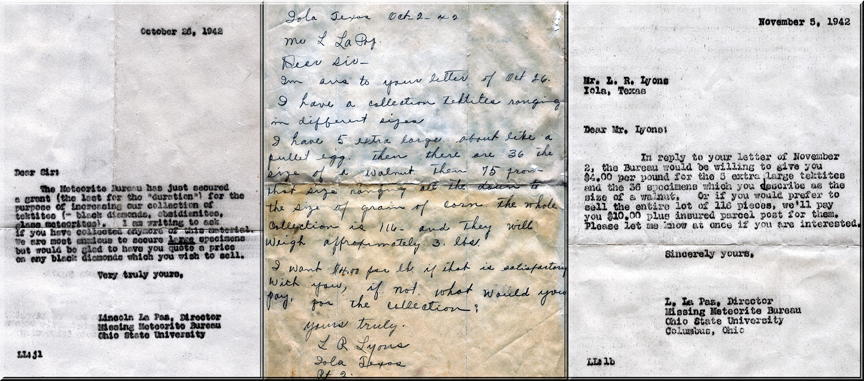 October 26, 1942
Dear Sir:
The Meteorite Bureau has just secured
a grant (the last for the "duration") for the
purpose of increasing our collection of
tektites (- black diamonds, obsidianites,
glass meteorites). I am writing to ask
if you have collected anymore of this material.
We are most anxious to secure large specimens
but would be glad to have you quote a price
on any black diamonds which you wish to sell.
Very truly yours,
Lincoln La Paz, Director
Missing Meteorite Bureau
Ohio State University
LL:jl
Iola Texas Oct-2-42
Mr L La Paz
Dear Sir-
Im ans to your letter of Oct 26.
I have a collection tektites ranging
in different sizes
I have 5 extra large about like a
pullet egg. then there are 36 the
size of a walnut then 75 from
that size ranging all the down to
the size of grain of corn the whole
collection is 116- and they will
weigh approximately 3. lbs.
I want $4.00 per lb. if that is satisfactory
with you, if not what would you
pay, for the collection;
yours truly.
L R Lyons
Iola Texas
Rt 2.
November 5, 1942
Mr. L. R. Lyons
Iola, Texas
Dear Mr. Lyons:
In reply to your letter of November
2, the Bureau would be willing to give you
$4.00 per pound for the 5 extra large tektites
and the 36 specimens which you describe as the
size of a walnut. Or if you would prefer to
sell the entire lot of 116 pieces, we'll pay
you $10.00 plus insured parcel post for them.
Please let me know at once if you are interested.
Sincerely yours,
L. La Paz, Director
Missing Meteorite Bureau
Ohio State University
Columbus, Ohio
LL:lb